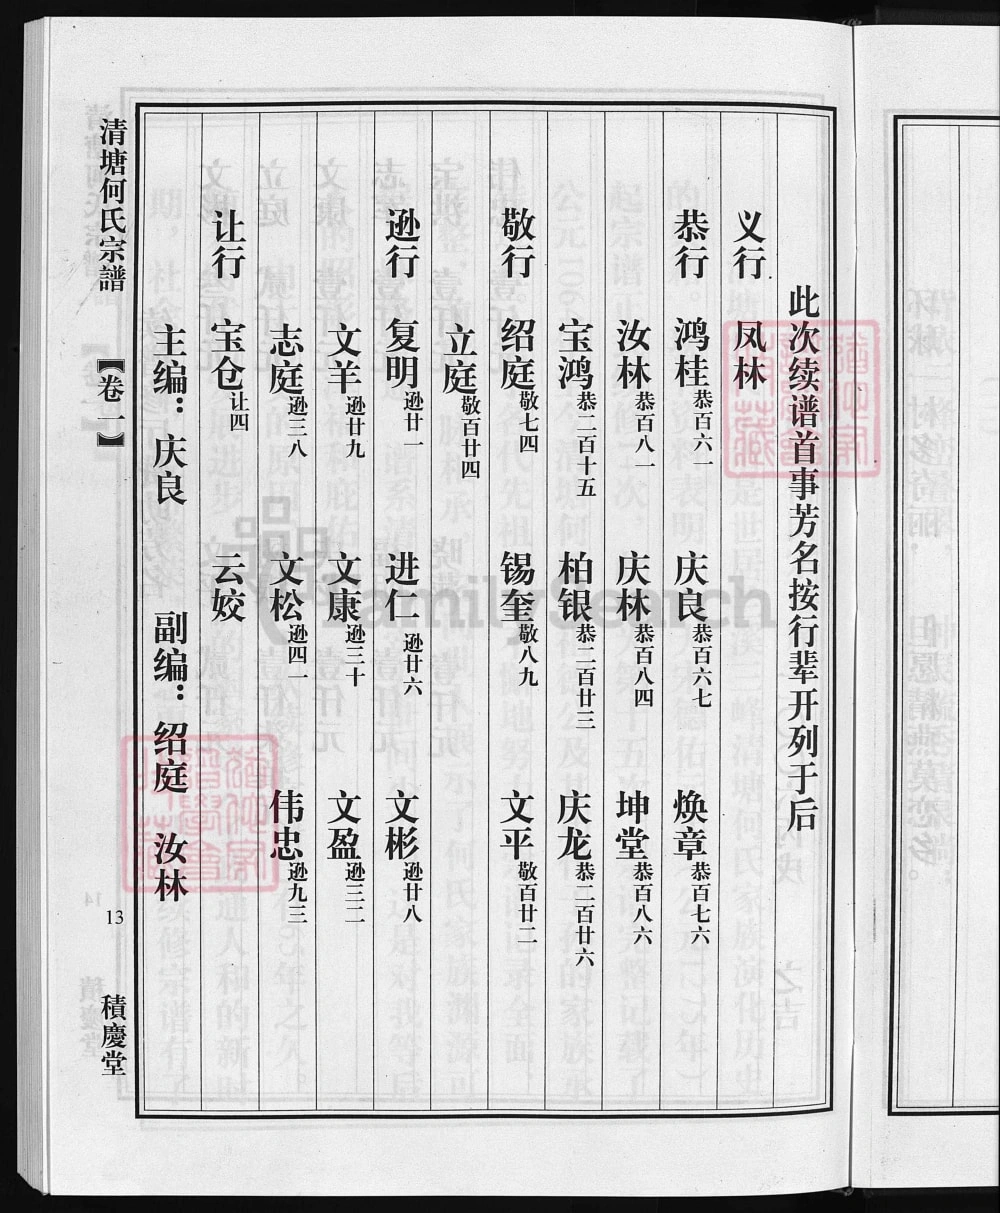 此次续谱首事芳名按行辈开列于后
义行 凤林
恭行 鸿桂恭百六一 庆良恭百六七 焕章恭百七六
汝林恭百八一 庆林恭百八四 坤堂恭百八六
宝鸿恭二百十五 柏银恭二百廿三 庆龙恭二百廿六
敬行 绍庭敬七四 锡奎敬八九 文平敬百廿二
立庭敬百廿四
逊行 复明逊廿一 进仁逊廿六 文彬逊廿八
文羊逊廿九 文康逊三十 文盈逊三二
志庭逊三八 文松逊四一 伟忠逊九三
让行 宝仓让四 云姣
主编：庆良 副编：绍庭 汝林
清塘何氏宗譜 【卷一】 13 積慶堂
FamilySearch